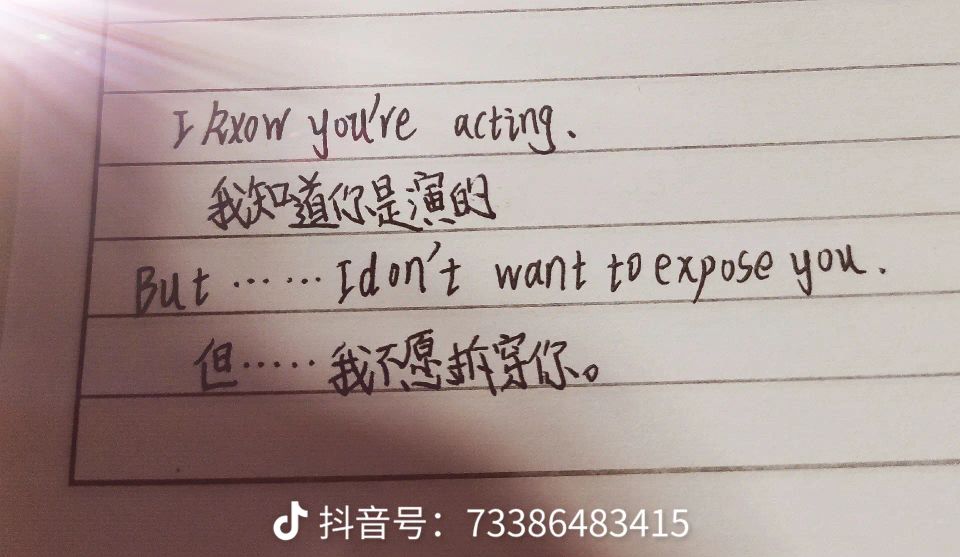 I know you're acting.
我知道你是演的
But ······ I don't want to expose you.
但······我不愿拆穿你。
抖音号：73386483415